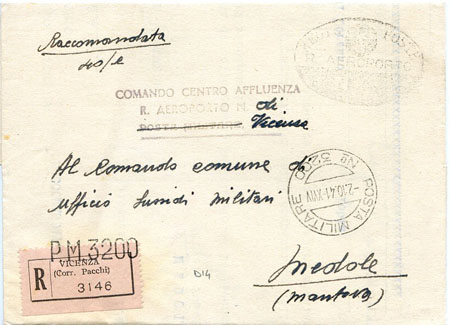 Raccomandata
COMANDO CENTRO AFFLUENZA
R. AEROPORTO N. di
POSTA MILITARE Vicenza
Al Comando comune di
Ufficio Sussidi Militari
POSTA MILITARE
Nº 3200
-2.10.41-XIX
P.M.3200
VICENZA
(Corr. Pacchi)
R
3146
D14
Medole
(Mantova)